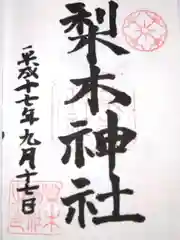 梨木神社
平成十七年九月十七日